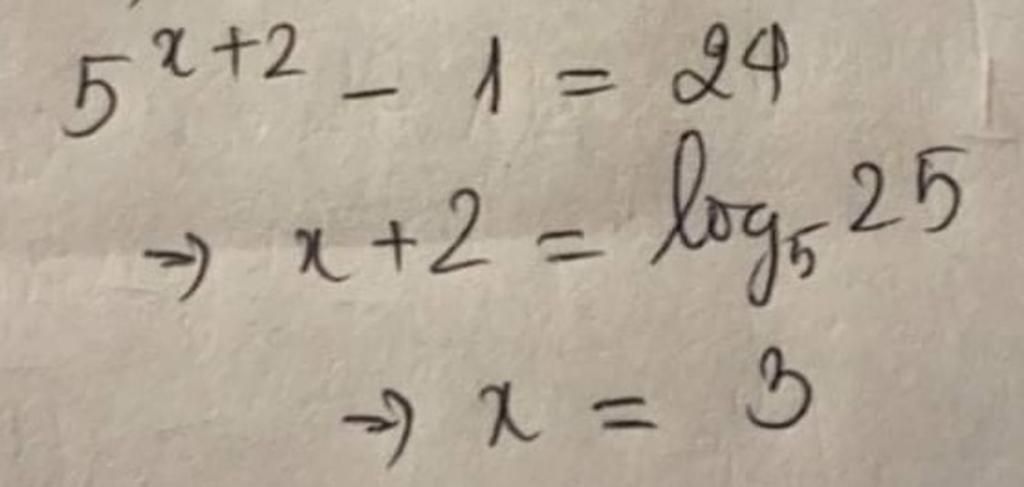 5^{x+2} - 1 = 24
→ x + 2 = log₅ 25
→ x = 3